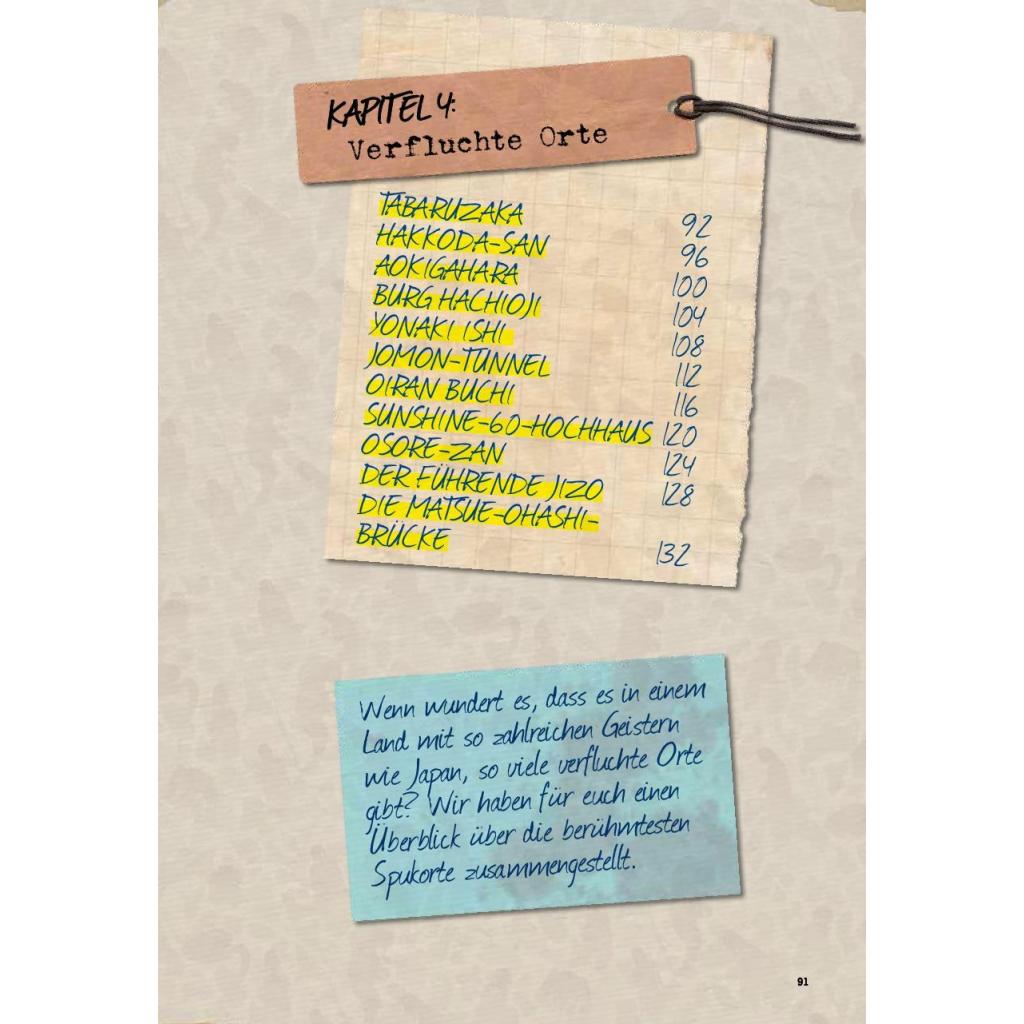 KAPITEL 4:
Verfluchte Orte
TABARUZAKA 92
HAKKODA-SAN 96
AOKIGAHARA 100
BURG HACHIOJI 104
YONAKI ISHI 108
JOMON-TUNNEL 112
OIRAN BUCHI 116
SUNSHINE-60-HOCHHAUS 120
OSORE-ZAN 124
DER FÜHRENDE JIZO 128
DIE MATSUE-OHASHI-
BRÜCKE 132
Wenn wundert es, dass es in einem
Land mit so zahlreichen Geistern
wie Japan, so viele verfluchte Orte
gibt? Wir haben für euch einen
Überblick über die berühmtesten
Spukorte zusammengestellt.
91